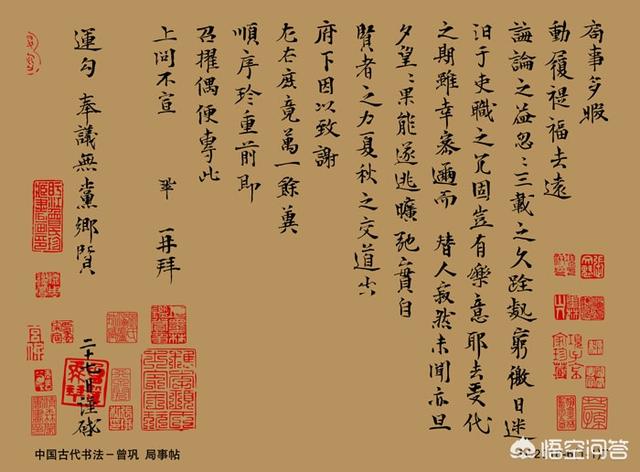 局事多暇
動履禔福去遠
誨論之益忽〻三載之久跧處窮徼日迷
汨于吏職之冗固豈有樂意耶去受代
之期雖幸密邇而 替人寂然未聞亦旦
夕望〻果能遂逃曠弛實自
賢者之力夏秋之交道出
府下因以致謝
左右庶竟萬一餘冀
順序珍重前即
召擢偶便專此
上問不宣 鞏 再拜
運勾 奉議無黨鄉賢
二十七日謹啓
中国古代书法－曾巩 局事帖
悟空问答